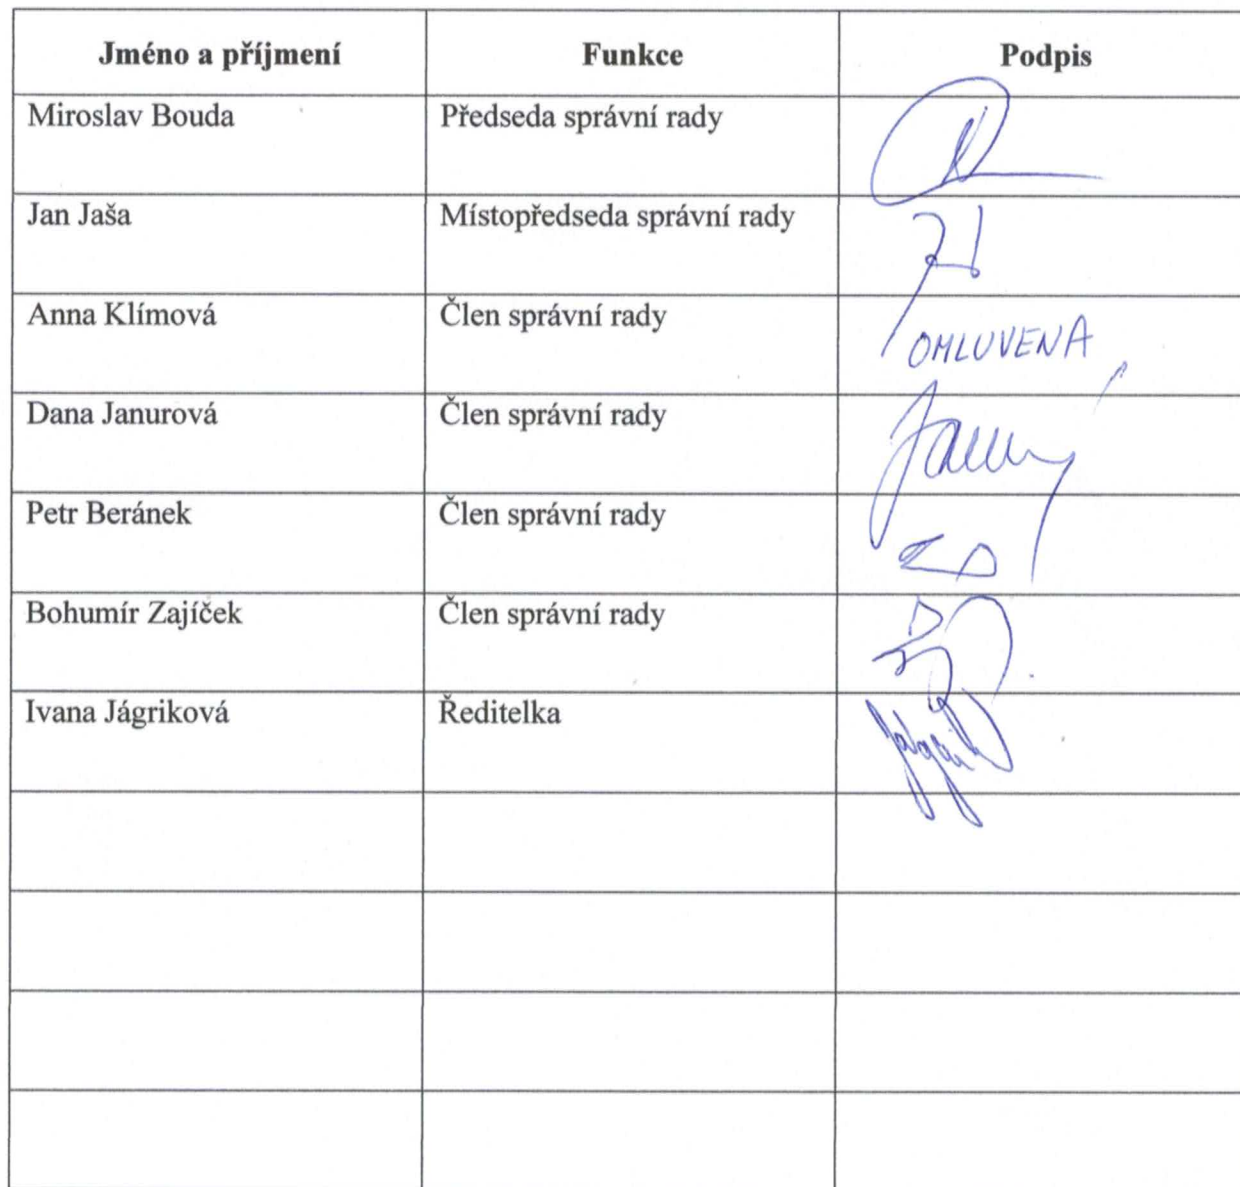 Jméno a příjmení Funkce Podpis
Miroslav Bouda Předseda správní rady
Jan Jaša Místopředseda správní rady
Anna Klímová Člen správní rady OMLUVENA
Dana Janurová Člen správní rady
Petr Beránek Člen správní rady
Bohumír Zajíček Člen správní rady
Ivana Jágriková Ředitelka